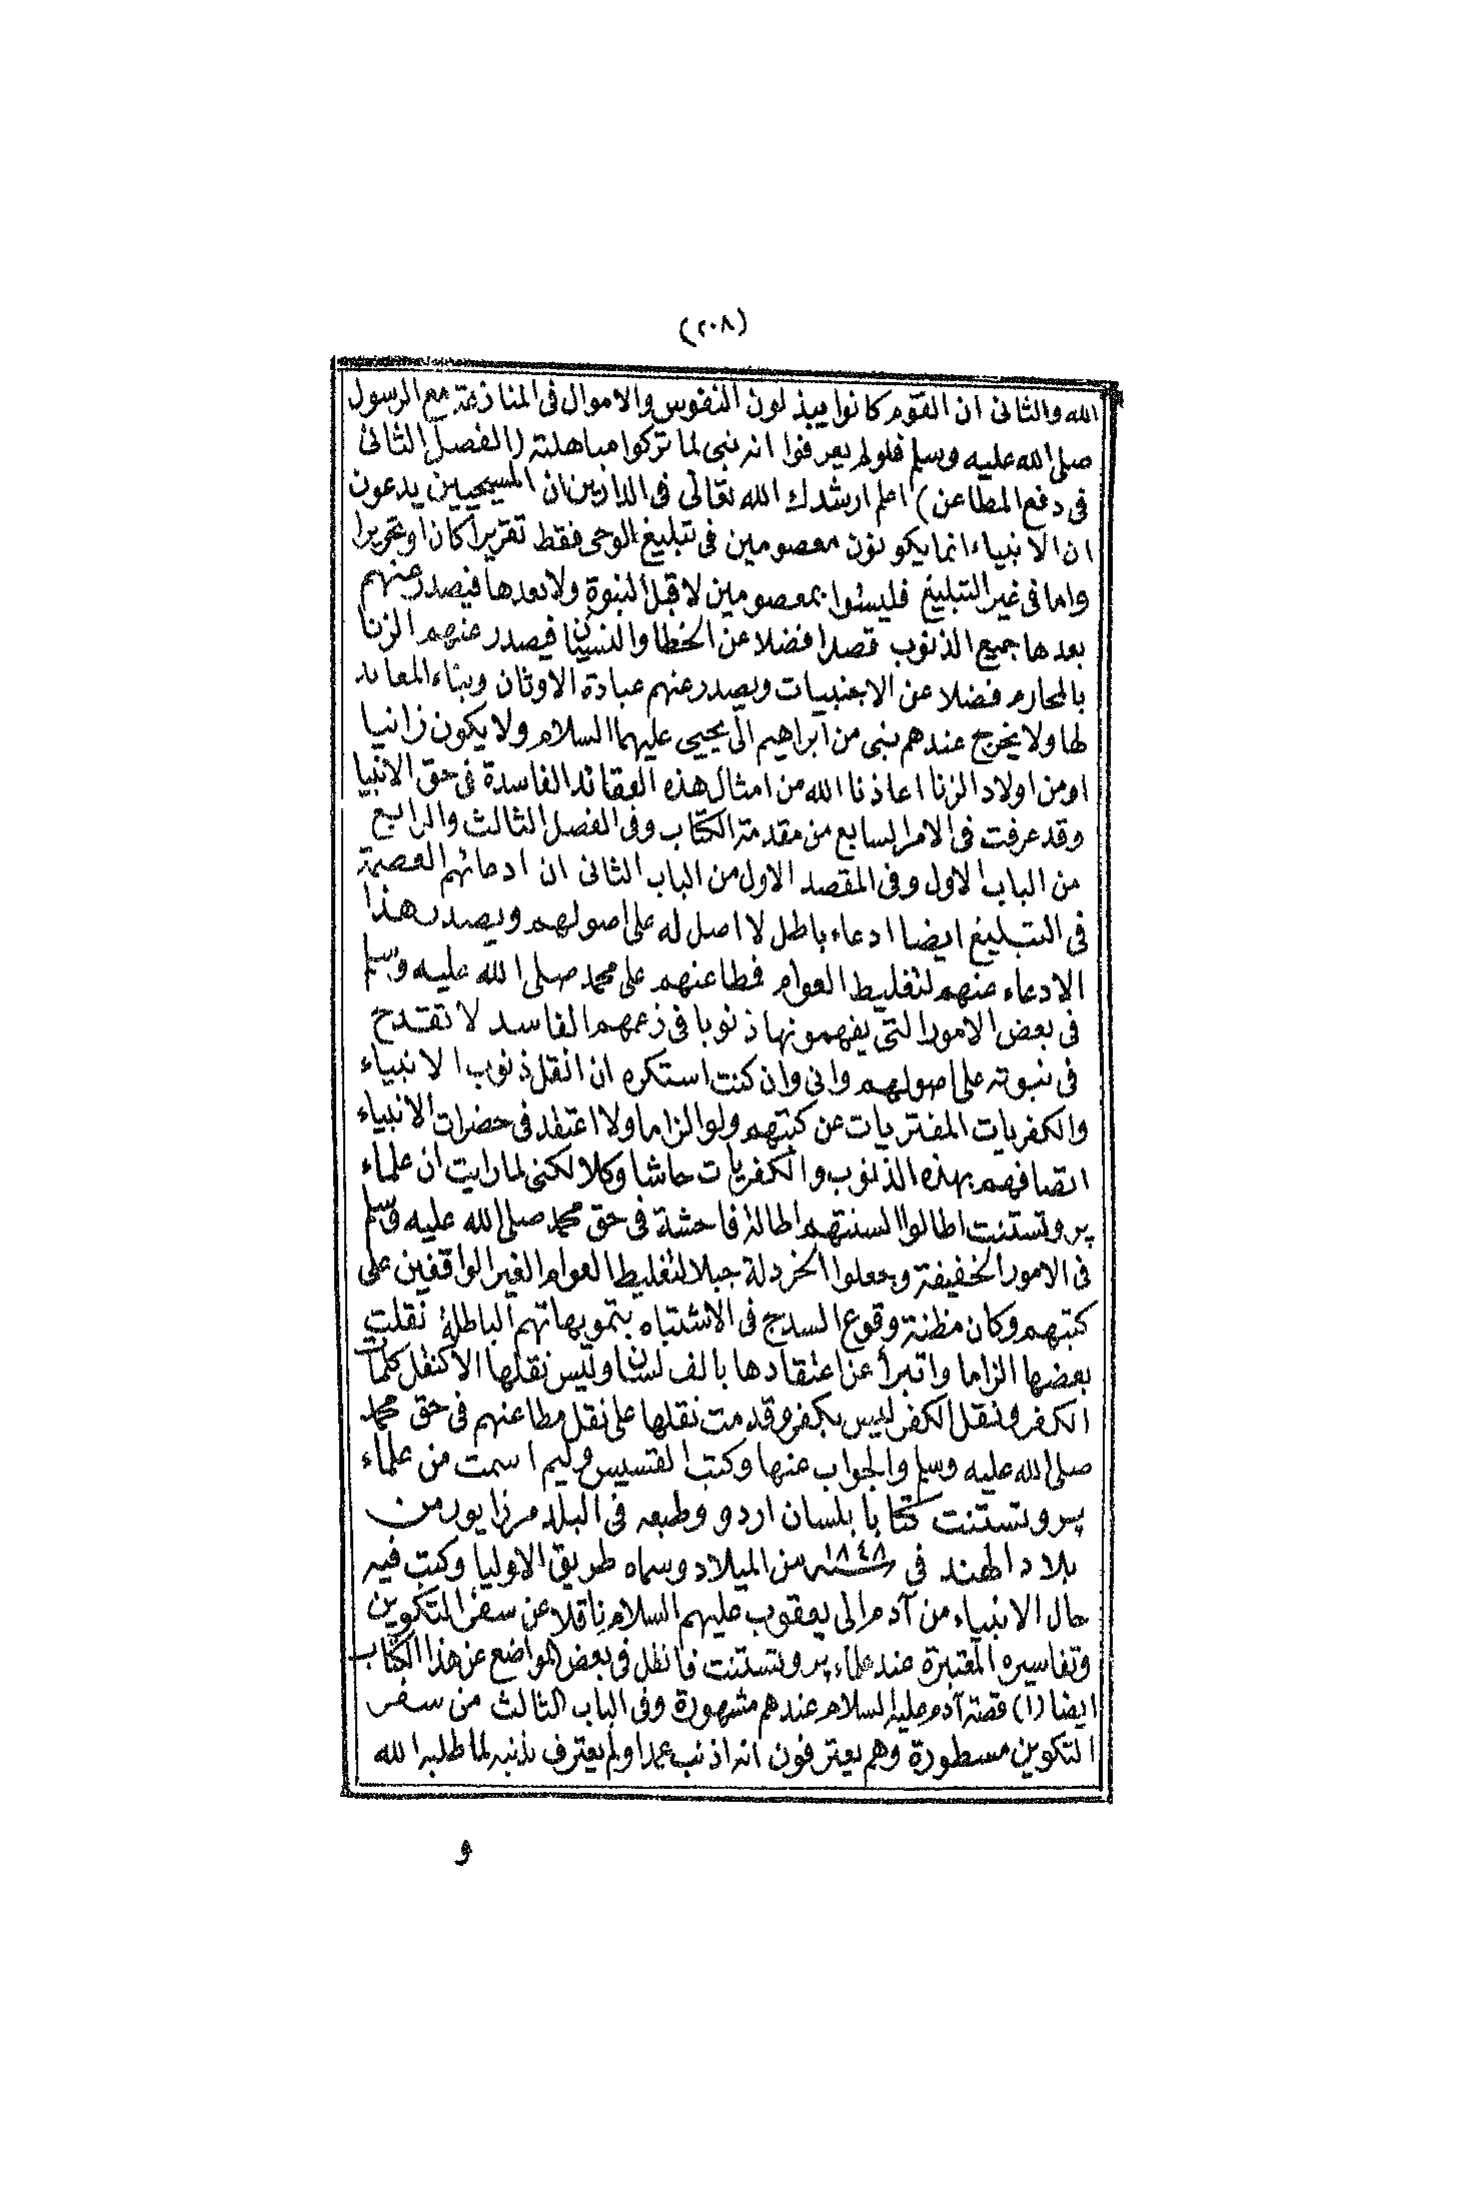 (٢٠٨)
الله والثاني ان القوم كانوا يبذلون النفوس والاموال فى المنازعة مع الرسول
صلى الله عليه وسلم فلو لم يعرفوا انه نبى لما تركوا مباهلته (الفصل الثانى
فى دفع المطاعن) اعلم ارشدك الله تعالى فى الدارين ان المسيحيين يدعون
ان الانبياء انما يكونون معصومين فى تبليغ الوحى فقط تقريرا كان او تحريرا
واما فى غير التبليغ فليسوا بمعصومين لا قبل النبوة ولا بعدها فيصدر عنهم
بعدها جميع الذنوب قصدا فضلا عن الخطا والنسيان فيصدر عنهم الزنا
بالمحارم فضلا عن الاجنبيات ويصدر عنهم عبادة الاوثان وبناء المعابد
لها ولا يخرج عندهم نبى من ابراهيم الى يحيى عليهما السلام ولا يكون زانيا
او من اولاد الزنا اعاذنا الله من امثال هذه العقائد الفاسدة فى حق الانبيا
وقد عرفت فى الامر السابع من مقدمة الكتاب وفى الفصل الثالث والرابع
من الباب الاول وفى المقصد الاول من الباب الثانى ان ادعائهم العصمة
فى التبليغ ايضا ادعاء باطل لا اصل له على اصولهم ويصدر هذا
الادعاء عنهم لتغليط العوام فطاعنهم على محمد صلى الله عليه وسلم
فى بعض الامور التى يفهمونها ذنوبا فى زعمهم الفاسد لا تقدح
فى نبوته على اصولهم وانى وان كنت استكره ان انقل ذنوب الانبياء
والكفريات المفتريات عن كتبهم ولو الزاما ولا اعتقد فى حضرات الانبياء
اتصافهم بهذه الذنوب والكفريات حاشا وكلا لكنى لما رايت ان علماء
پروتستنت اطالوا السنتهم اطالة فاحشة فى حق محمد صلى الله عليه وسلم
فى الامور الخفيفة وجعلوا الخردلة جبلا لتغليط العوام الغير الواقفين على
كتبهم وكان مظنة وقوع السذج فى الاشتباه بتمويهاتهم الباطلة نقلت
بعضها الزاما واتبرأ عن اعتقادها بالف لسان وليس نقلها الا كنقل كلمات
الكفر ونقل الكفر ليس بكفر وقدمت نقلها على نقل مطاعنهم فى حق محمد
صلى الله عليه وسلم والجواب عنها وكتب القسيس وليم اسمت من علماء
پروتستنت كتابا بلسان اردو وطبعه فى البلد مرزا پور من
بلاد الهند فى سنة ١٨٤٨ من الميلاد وسماه طريق الاوليا وكتب فيه
حال الانبياء من آدم الى يعقوب عليهم السلام ناقلا عن سفر التكوين
وتفاسيره المعتبرة عند علماء پروتستنت فانقل فى بعض المواضع عن هذا الكتاب
ايضا (ا) قصة آدم عليه السلام عندهم مشهورة وفى الباب الثالث من سفر
التكوين مسطورة وهم يعترفون انه اذنب عمدا ولم يعترف بذنبه لما طلبه الله
و